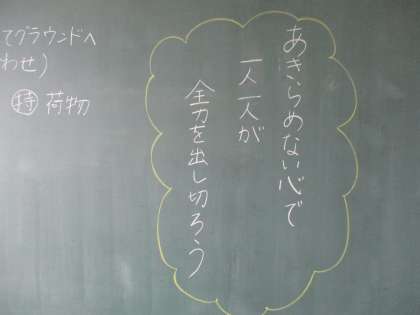 てグラウンドへ
わせ)
持 荷物
あきらめない心で
一人一人が
全力を出し切ろう